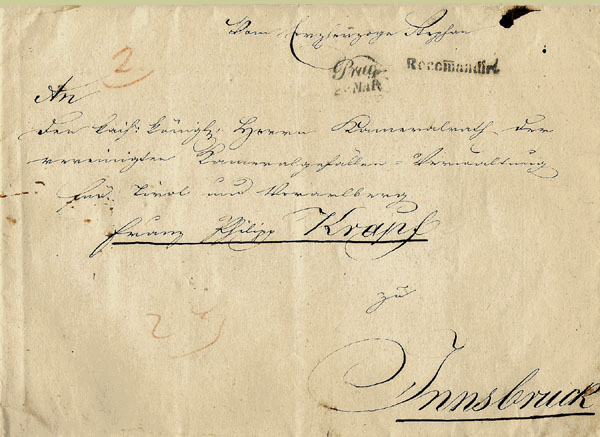 Vom Erzherzoge Stephan
2.
Prag
MAR
Recomandirt
An
den kais: königl: Herrn Kameralrath der
vereinigten Kameralgefällen-Verwaltung
für Tirol und Vorarlberg
Franz Philipp Krapf
zu
Innsbruck